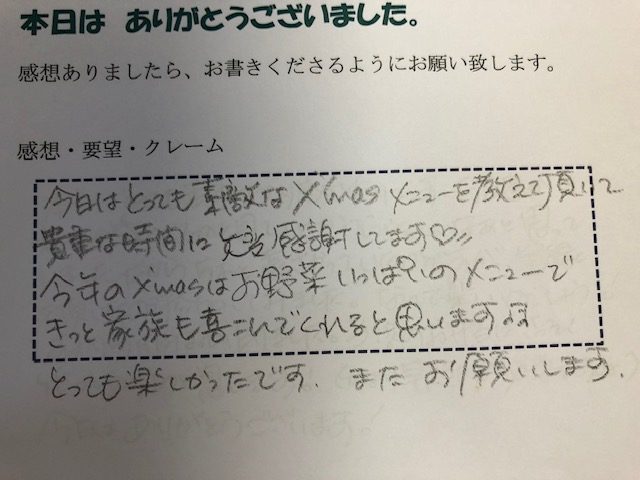 本日は ありがとうございました。
感想ありましたら、お書きくださるようにお願い致します。
感想・要望・クレーム
今日はとっても素敵なX'masメニューを教えて頂いて
貴重な時間に 感謝してます♡〃
今年のX'masはお野菜いっぱいのメニューで
きっと家族も喜こんでくれると思います♫
とっても楽しかったです. また お願いします.